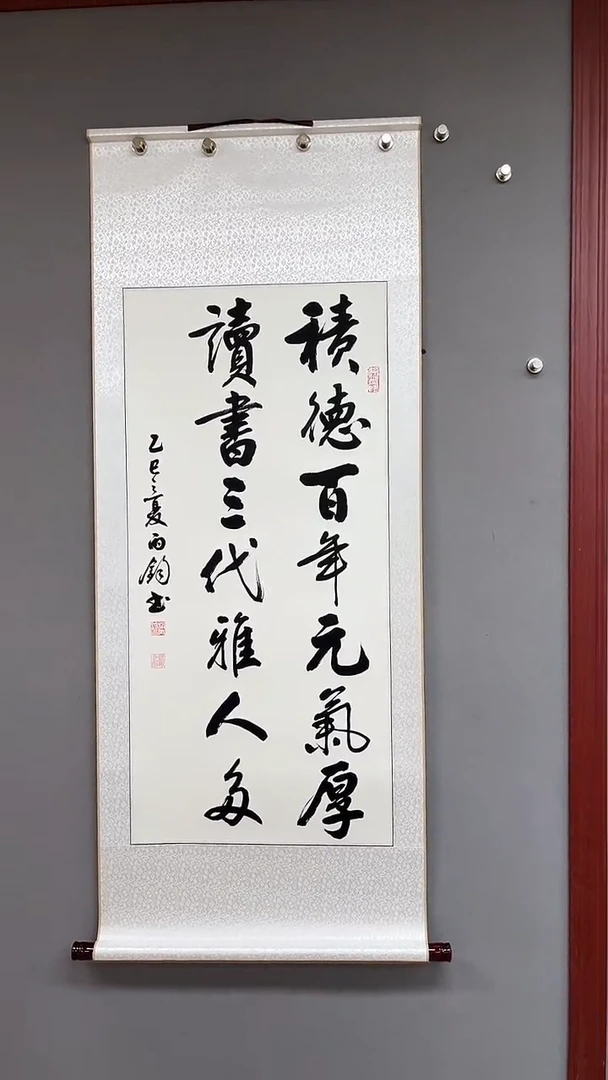 積德百年元氣厚
讀書三代雅人多
乙巳之夏雨鈞书